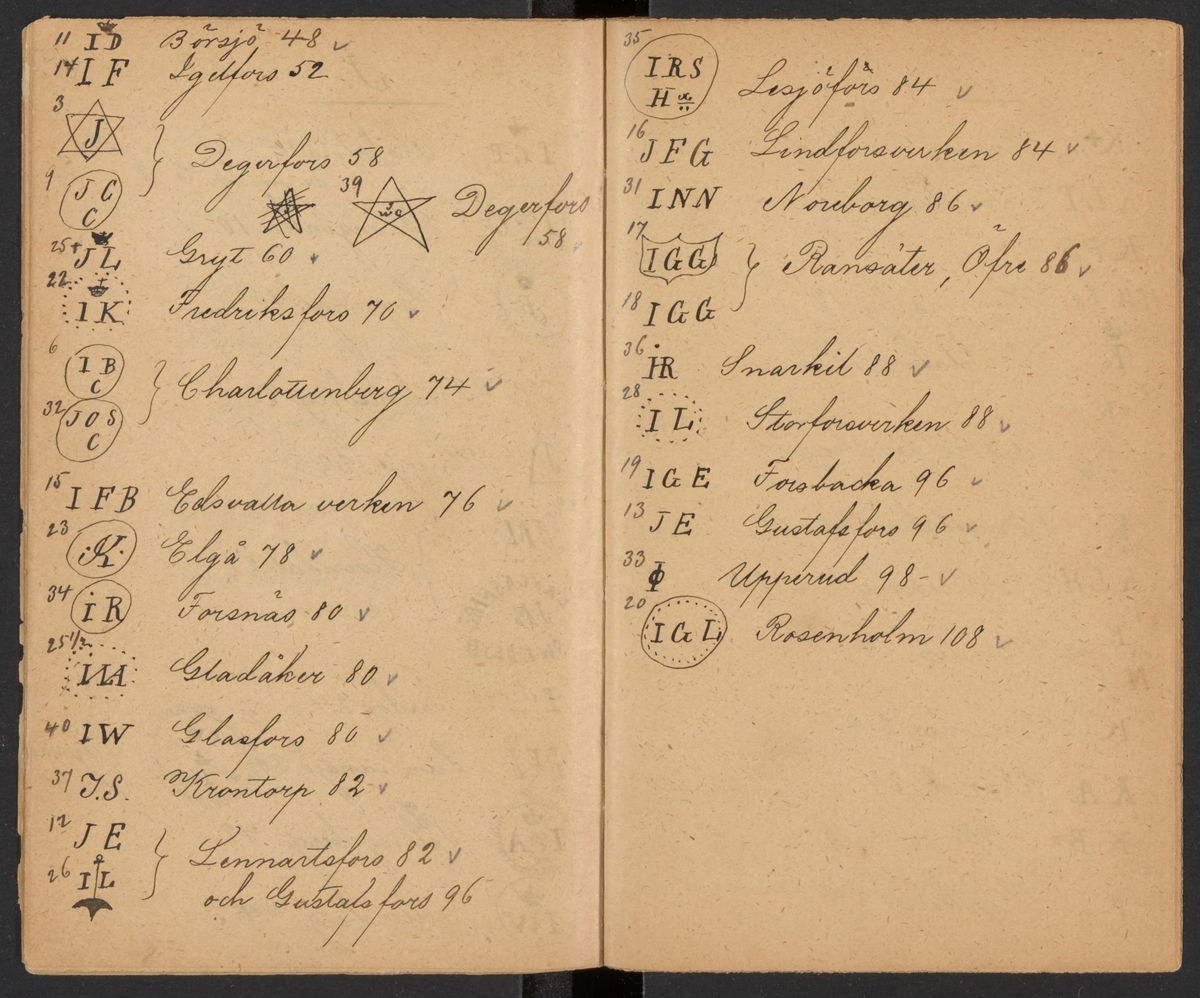 11 I D Börsjö 48
14 I F Igelfors 52
3 J
Degerfors 58
9 J C
C
39 J
W C Degerfors
58
25+ J L Gryt 60
22 I K Fredriksfors 70
6 I B
C
Charlottenberg 74
32 J O S
C
15 I F B Edsvalla verken 76
23 K Elgå 78
34 I R Forsnäs 80
25 1/2 Gladåker 80
40 I W Glasfors 80
37 J.S. Krontorp 82
12 J E
Lennartsfors 82
26 I L
och Gustafsfors 96
35 I R S
H Lesjöfors 84
16 J F G Lindforsverken 84
31 I N N Norborg 86
17 I G G
Ransäter, Öfre 86
18 I G G
36 I R Snarkil 88
28 I L Storforsverken 88
19 I G E Forsbacka 96
13 J E Gustafsfors 96
33 Upperud 98-
20 I G L Rosenholm 108